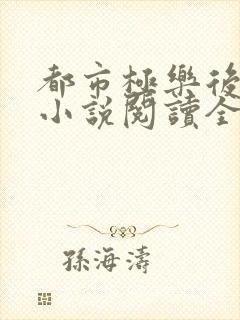 都市極樂後
小說閱讀全
孫海濤